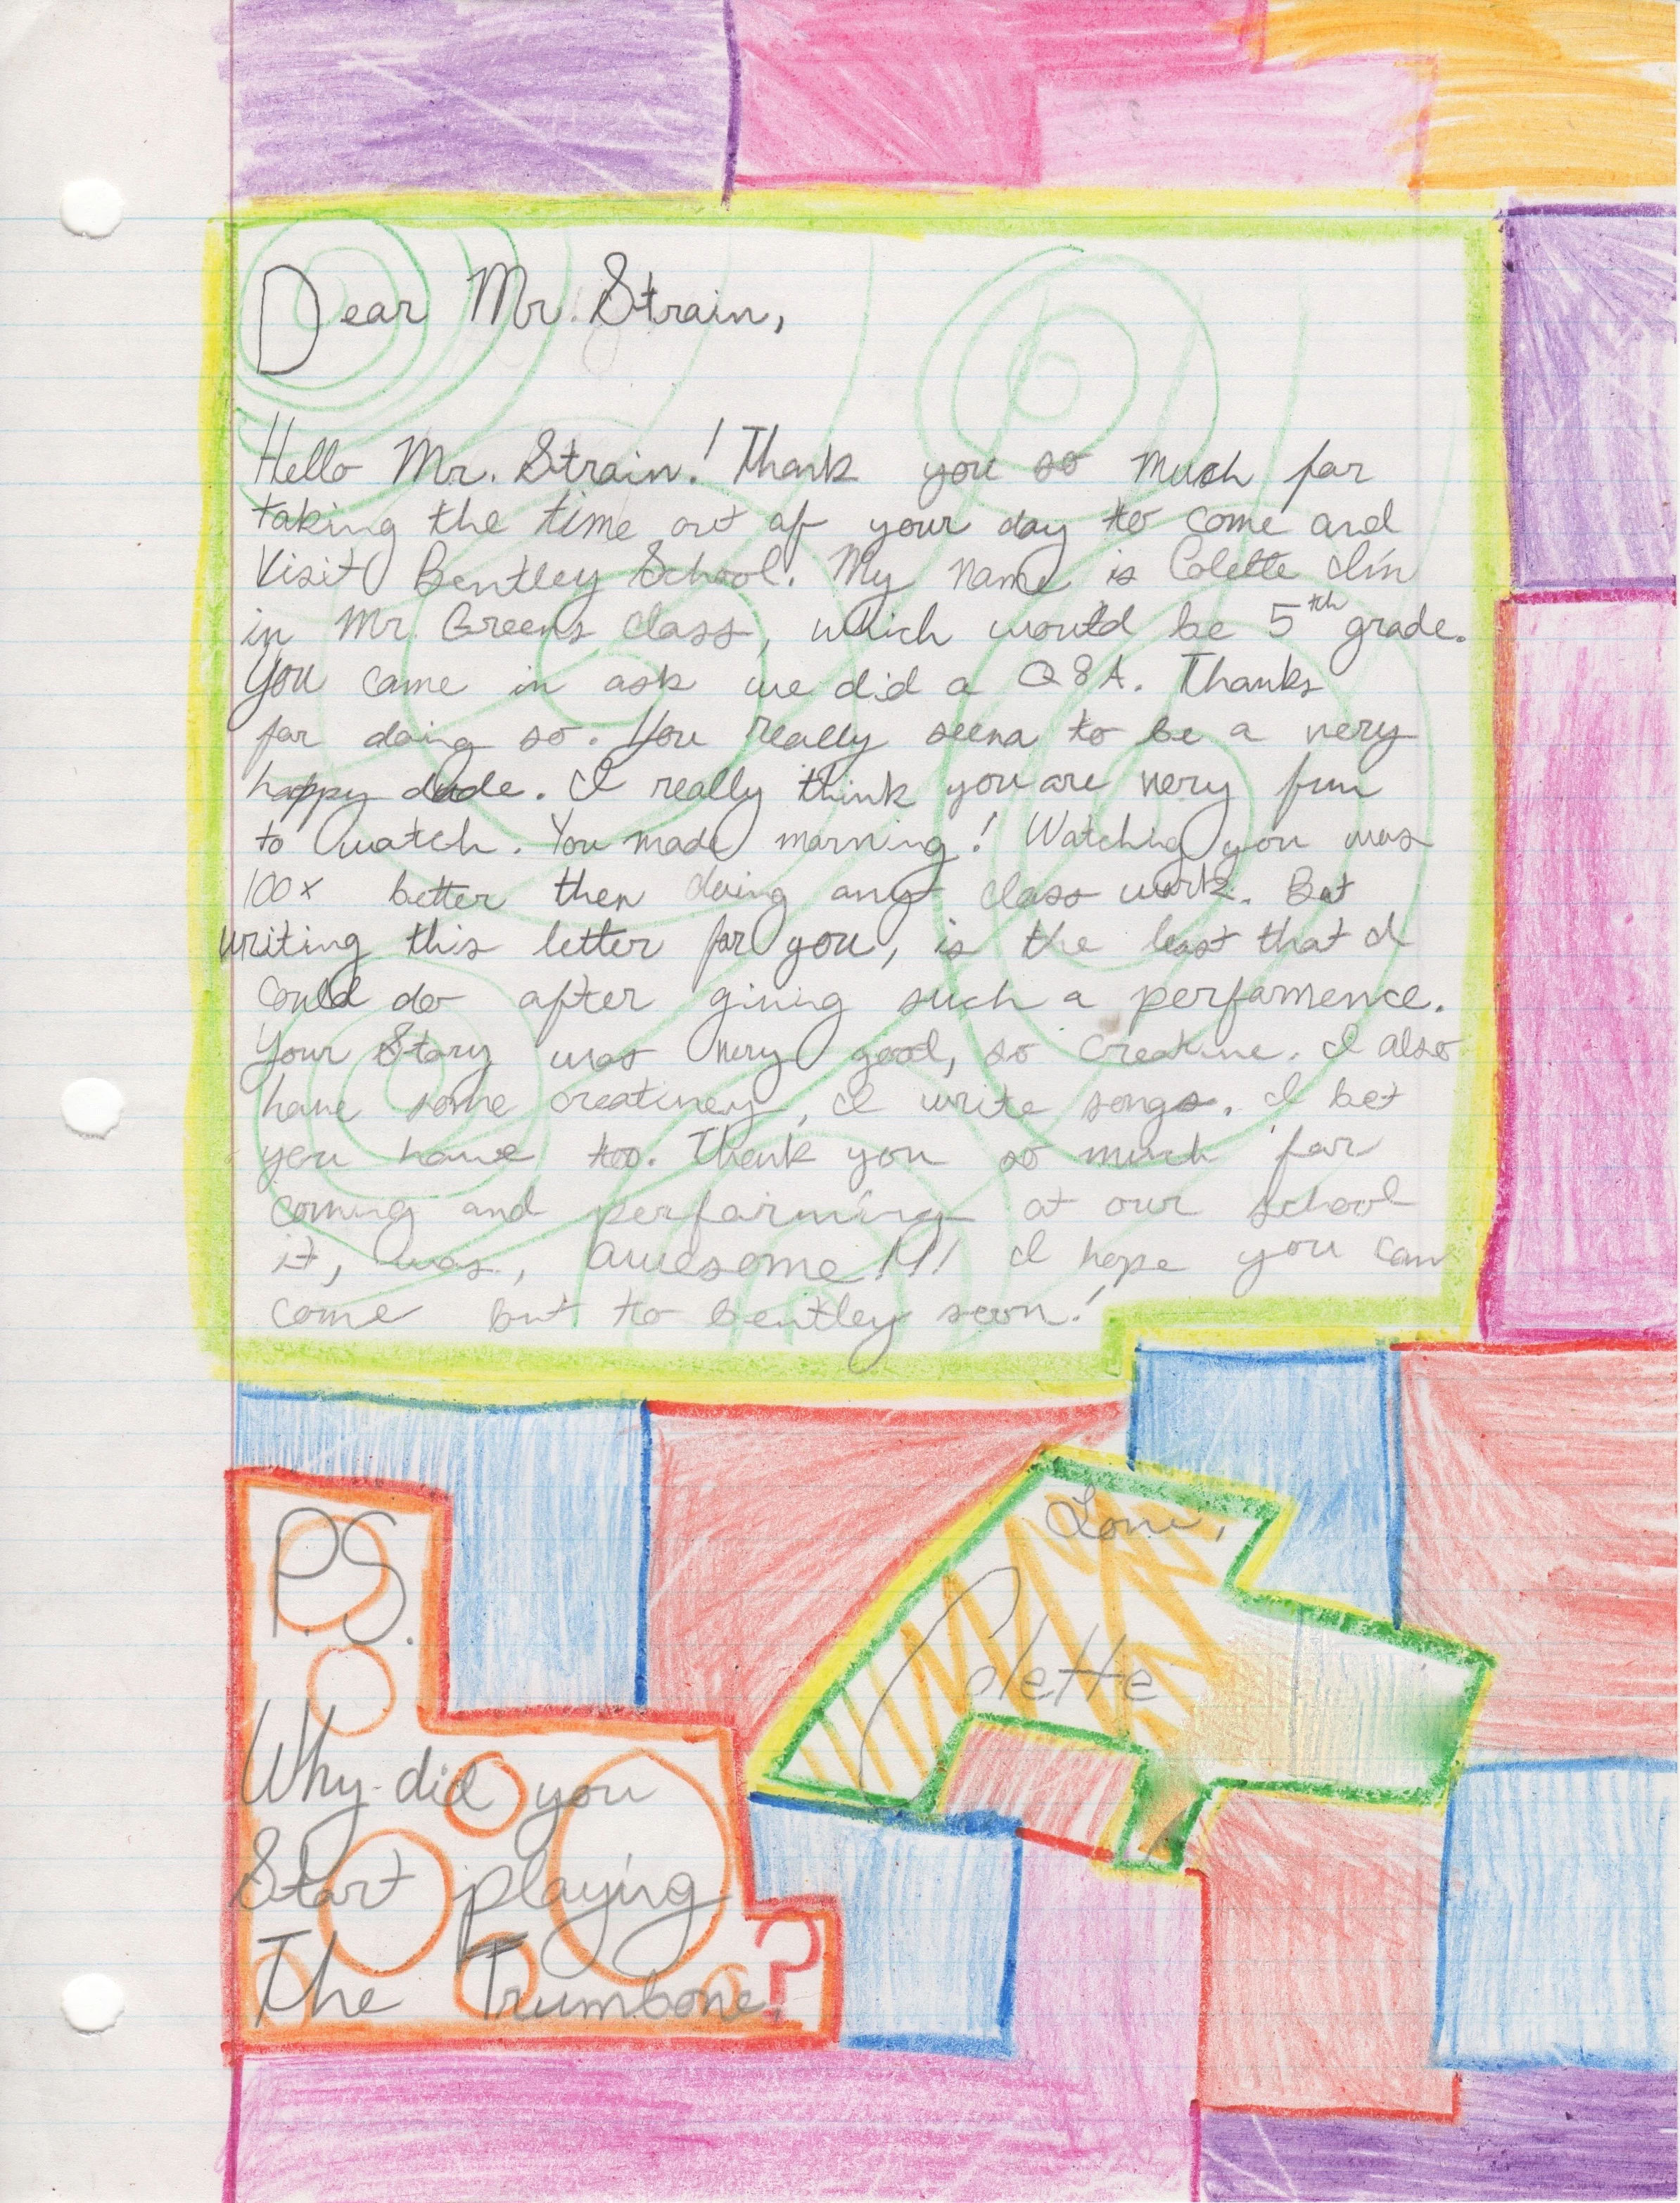 Dear Mr. Strain,
Hello Mr. Strain! Thank you so much for
taking the time out of your day to come and
Visit Bentley School. My name is Colette I'm
in Mr. Greens class, which would be 5th grade.
You came in ask we did a Q&A. Thanks
for doing so. You really seem to be a very
happy dude. I really think you are very fun
to watch. You made morning! Watching you was
100x better then doing any class work. But
writing this letter for you, is the least that I
could do after giving such a performence.
Your Story was very good, so creative. I also
have some creativey, I write songs. I bet
you have too. Thank you so much for
coming and performing at our school
it, was, awesome!!! I hope you can
come but to bentley soon!
Love,
Colette
P.S.
Why did you
Start playing
The Trumbone?